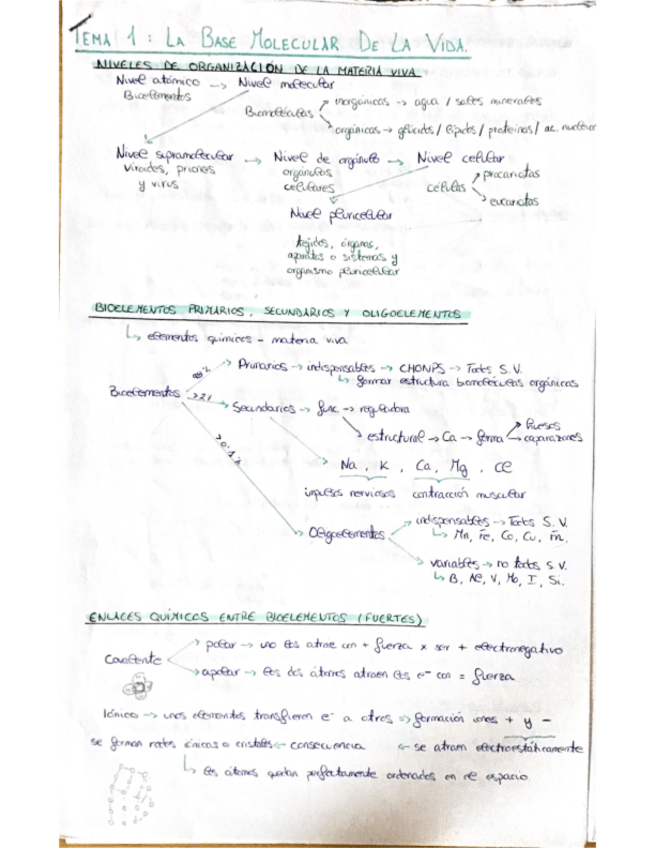 TEMA 1: LA BASE MOLECULAR DE LA VIDA.
NIVELES DE ORGANIZACIÓN DE LA MATERIA VIVA
Nivel atómico → Nivel molecular
Bioelementos
Biomoléculas
inorgánicas → agua / sales minerales
orgánicas → glúcidos / lípidos / proteínas / ac. nucleicos
Nivel supramolecular → Nivel de orgánulo → Nivel celular
Viroides, priones y virus
orgánulos celulares
células
procariotas
eucariotas
Nivel pluricelular
tejidos, órganos,
aparatos o sistemas y
organismo pluricelular
BIOELEMENTOS PRIMARIOS, SECUNDARIOS Y OLIGOELEMENTOS
↳ elementos químicos - materia viva
Primarios → indispensables → CHONPS → Todos S.V.
↳ formar estructura biomoléculas orgánicas
Bioelementos
Secundarios → func → reguladora
estructural → Ca → forma
huesos
caparazones
Na, K, Ca, Mg, Cl
impulsos nerviosos contracción muscular
Oligoelementos
indispensables → Todos S.V.
↳ Mn, Fe, Co, Cu, Zn.
variables → no todos S.V.
↳ B, Al, V, Mo, I, Si.
ENLACES QUÍMICOS ENTRE BIOELEMENTOS (FUERTES)
Covalente
polar → uno los atrae con + fuerza x ser + electronegativo
apolar → los dos átomos atraen los e⁻ con = fuerza
Iónico → unos elementos transfieren e⁻ a otros → formación iones + y -
se forman redes iónicas o cristales ← consecuencia ← se atraen electroestáticamente
↳ los átomos quedan perfectamente ordenados en el espacio.